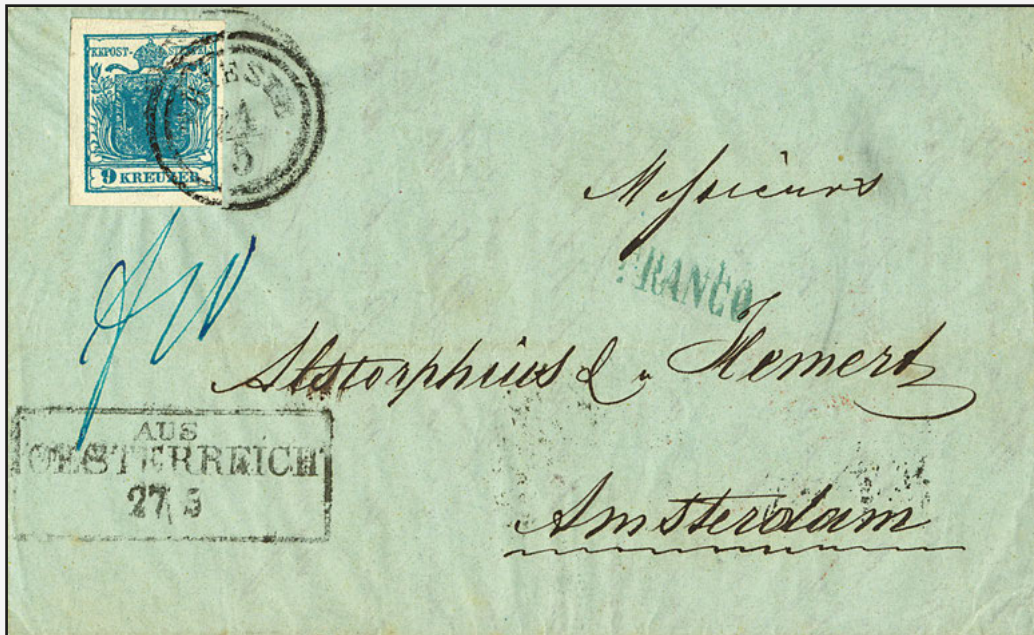 KKPOST-STEMPEL
TRIEST
24
5
9 KREUZER
Messieurs
FRANCO
Alstorphius & v Hemert
AUS
OESTERREICH
27 5
Amsterdam